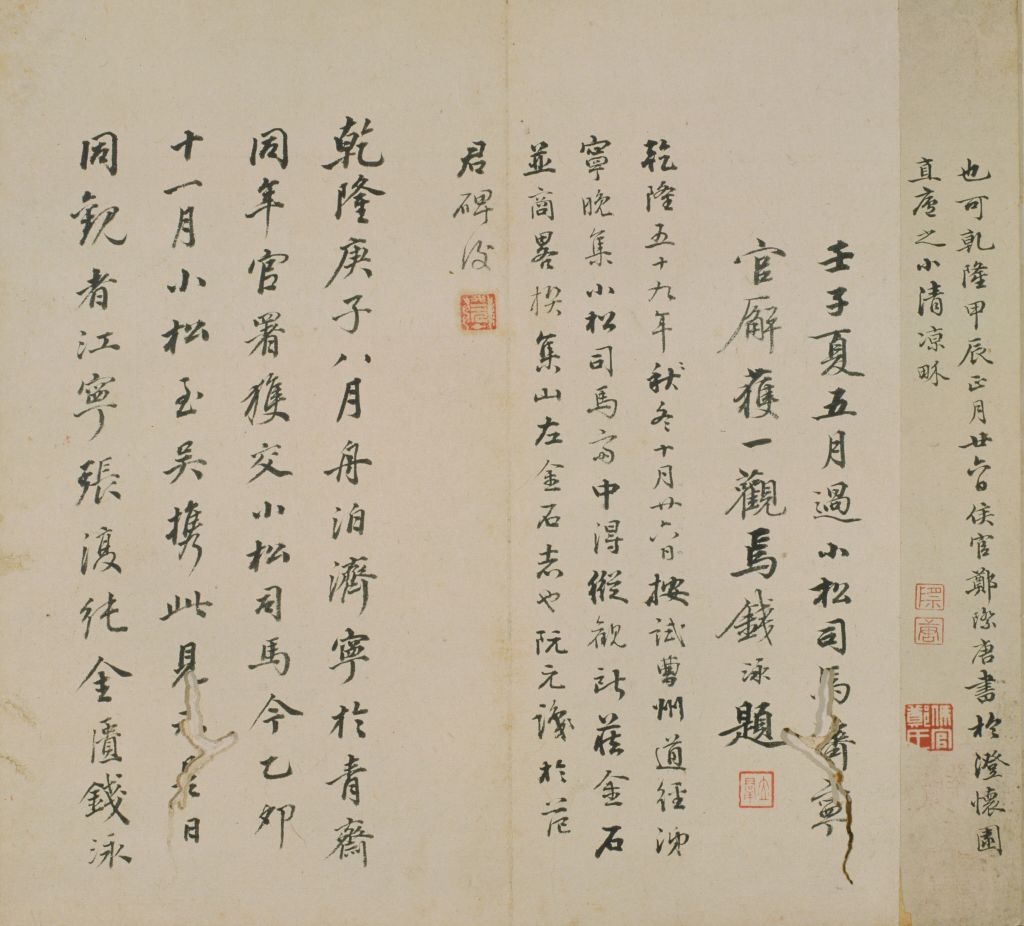 也可乾隆甲辰正月廿六日侯官鄭際唐書於澄懷園
直廬之小清涼䣛
際唐
侯官鄭氏
壬子夏五月過小松司馬濟寧
官廨獲一觀焉錢泳題
乾隆五十九年秋冬十月廿六日按試曹州道經沛
寧晚集小松司馬斋中得縱観所藏金石
並商畧楔集山左金石志也阮元識於范
君碑後
乾隆庚子八月舟泊濟寧於青齋
同年官署獲交小松司馬今乙卯
十一月小松至吴携此見示是日
同觀者江寧張復純金匱錢泳